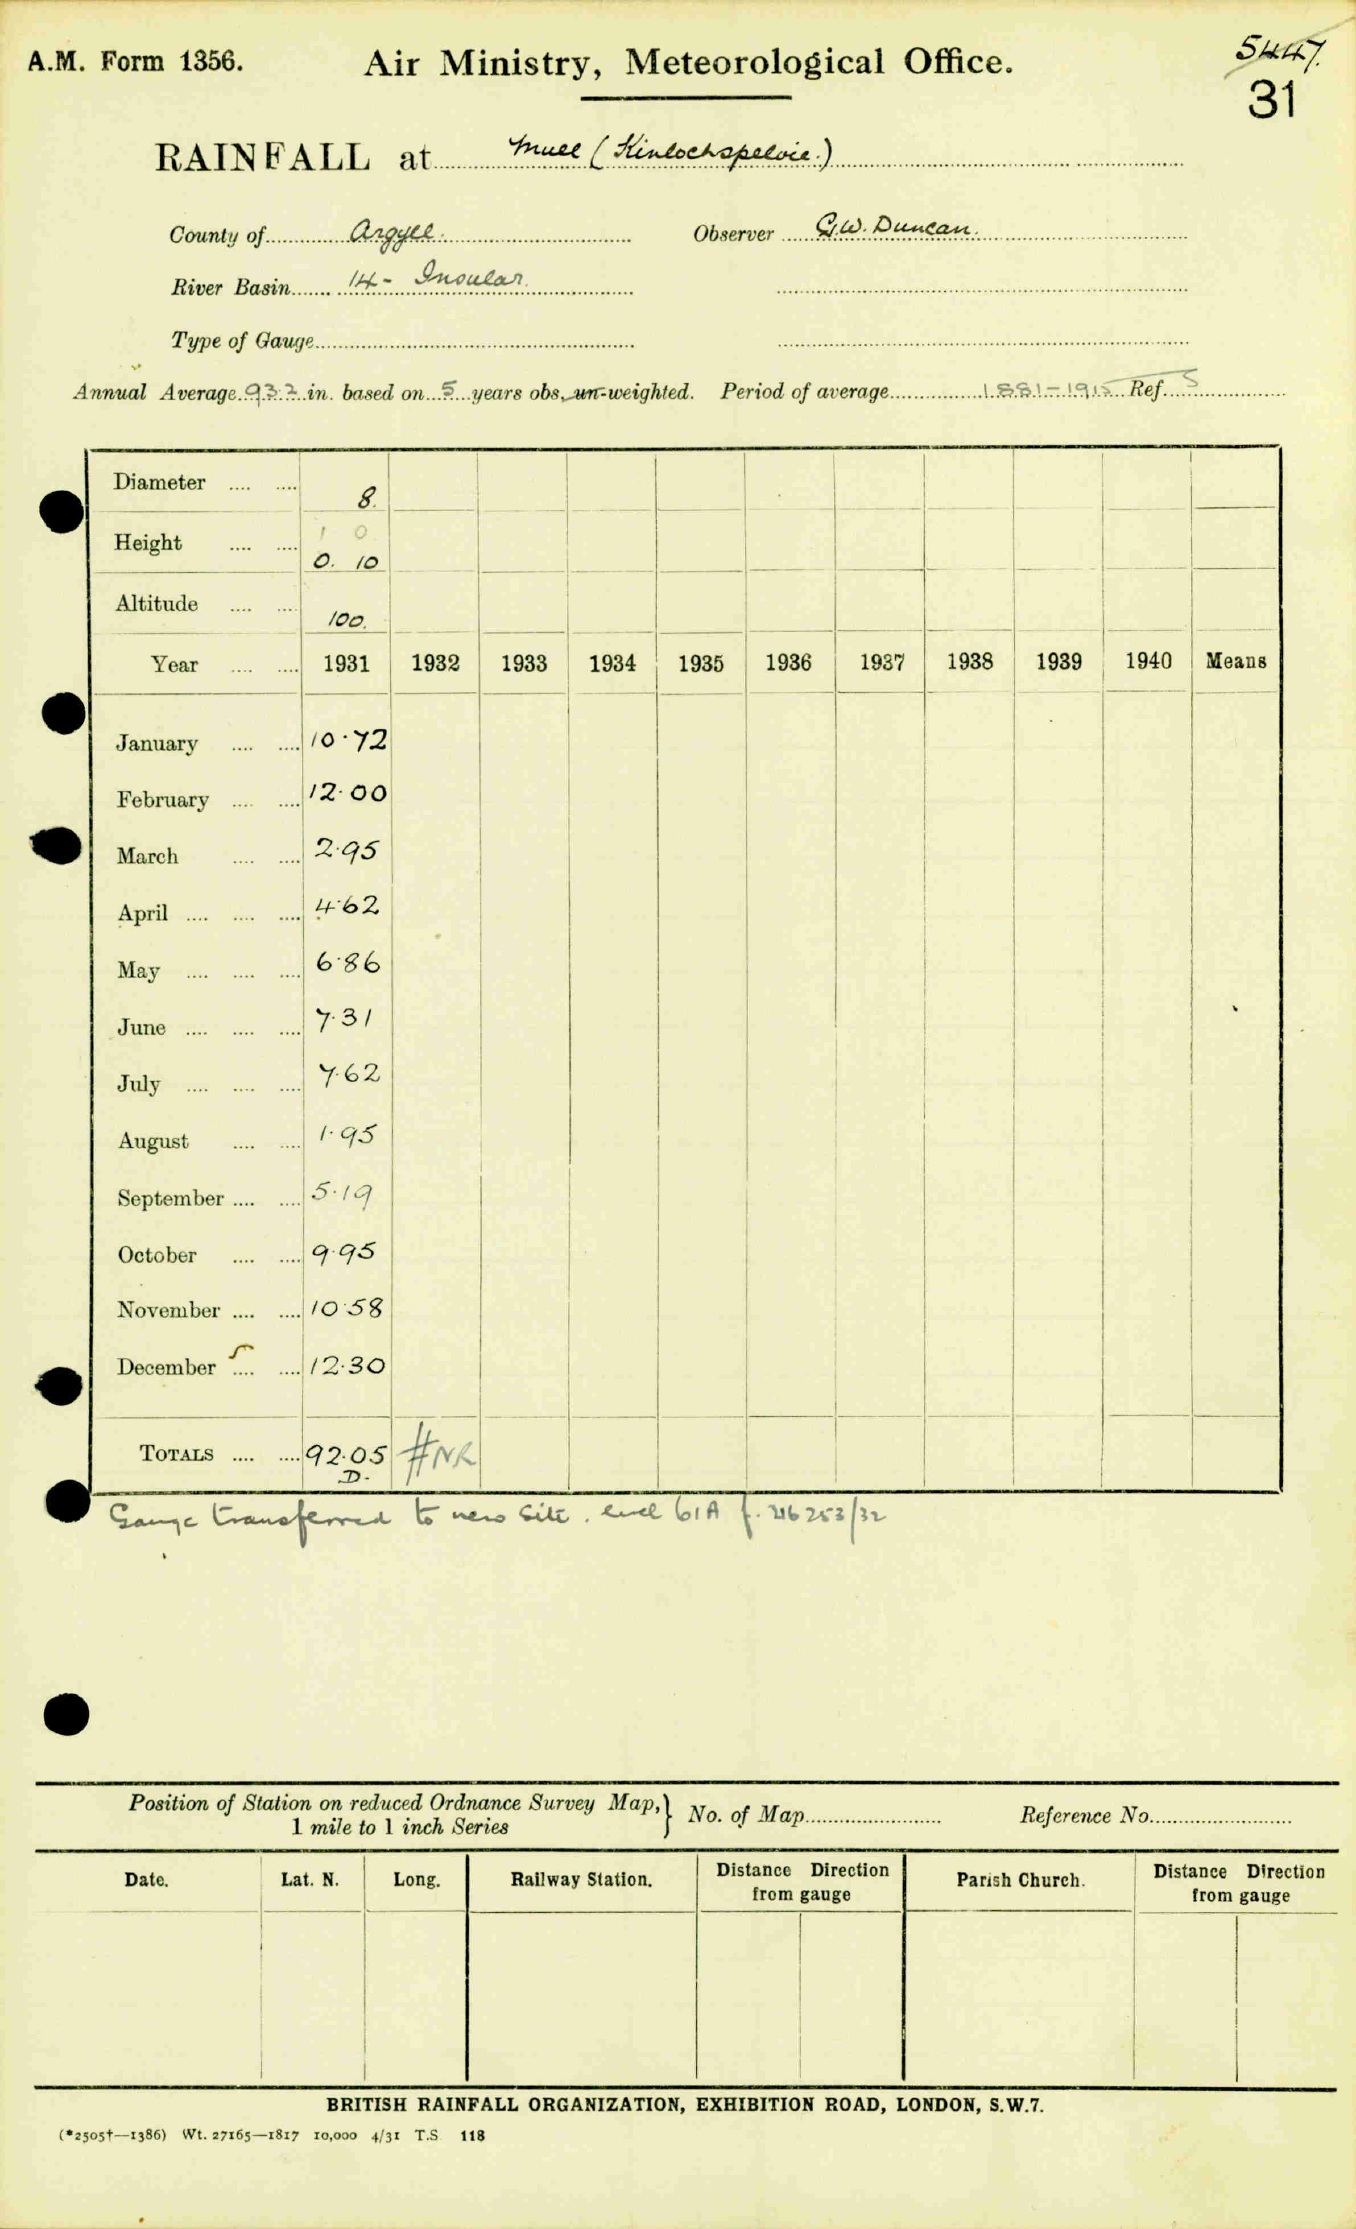 A.M. Form 1356.
Air Ministry, Meteorological Office.
5447.
31
RAINFALL at Mull (Kinlochspelvie.)
County of Argyll. Observer G.W. Duncan.
River Basin 14 - Insular.
Type of Gauge
Annual Average 93.2 in. based on 5 years obs. un-weighted. Period of average 1881-1915 Ref. S
Diameter 8.
Height 1 0
0. 10
Altitude 100.
Year 1931 1932 1933 1934 1935 1936 1937 1938 1939 1940 Means
January 10.72
February 12.00
March 2.95
April 4.62
May 6.86
June 7.31
July 7.62
August 1.95
September 5.19
October 9.95
November 10.58
December 12.30
TOTALS 92.05 #NR
D.
Gauge transferred to new site. 61A 216253/32
Position of Station on reduced Ordnance Survey Map,
1 mile to 1 inch Series } No. of Map Reference No.
Date. Lat. N. Long. Railway Station. Distance Direction from gauge Parish Church. Distance Direction from gauge
BRITISH RAINFALL ORGANIZATION, EXHIBITION ROAD, LONDON, S.W.7.
(*2505†—1386) Wt. 27165—1817 10,000 4/31 T.S 118